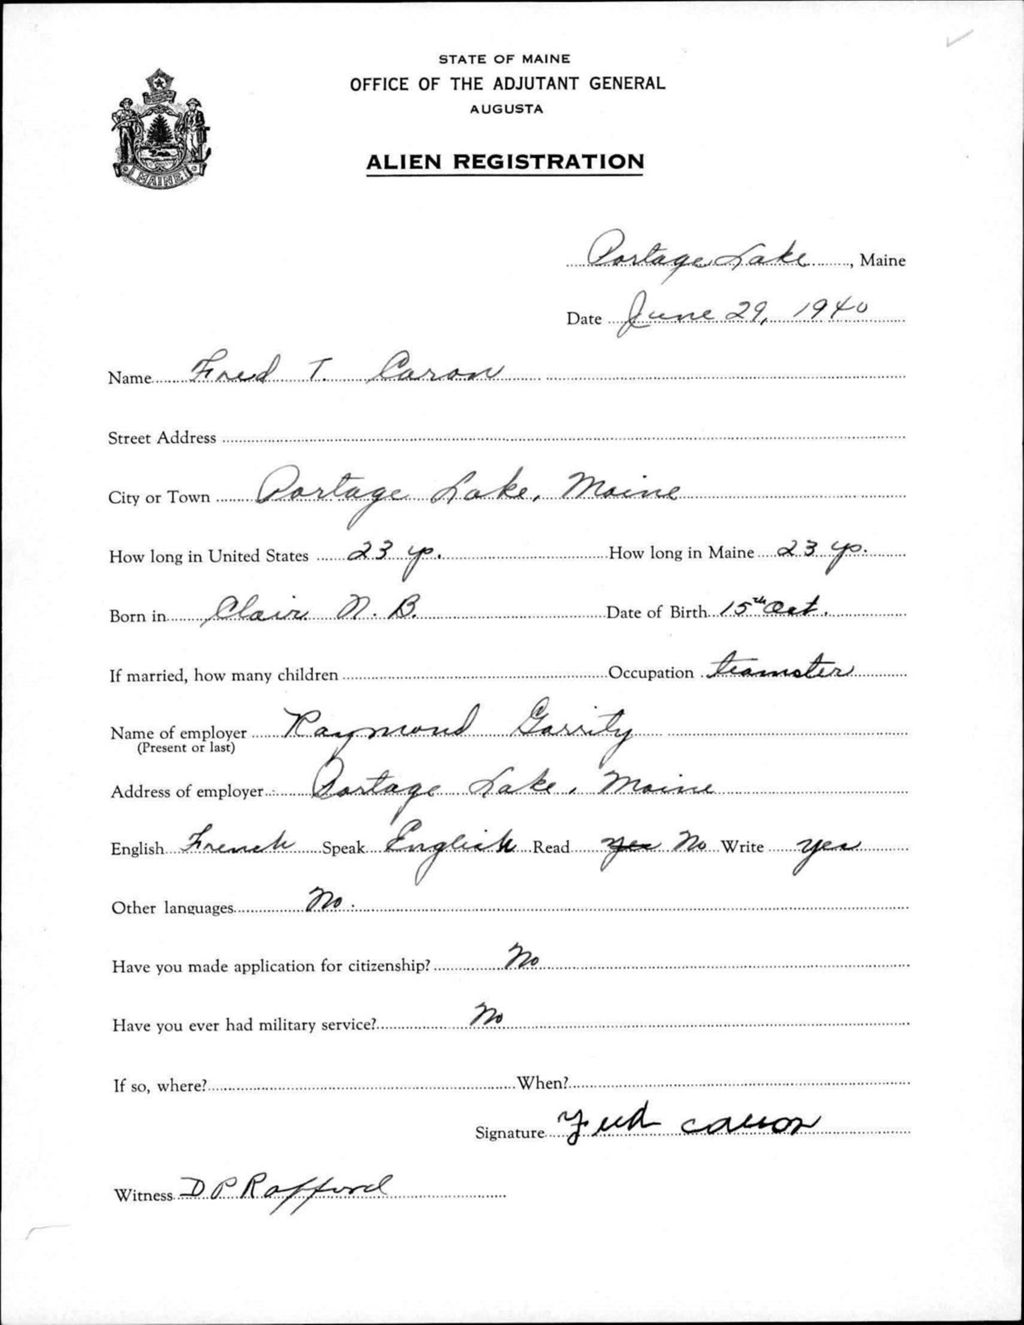 STATE OF MAINE
OFFICE OF THE ADJUTANT GENERAL
AUGUSTA
ALIEN REGISTRATION
MAINE
Portage Lake, Maine
Date June 29, 1940
Name Fred T. Caron
Street Address
City or Town Portage Lake, Maine
How long in United States 23 yr. How long in Maine 23 yr.
Born in Clair N. B. Date of Birth 15th Oct.
If married, how many children Occupation teamster
Name of employer Raymond Garrity
(Present or last)
Address of employer Portage Lake, Maine
English French Speak English Read yes No Write yes
Other languages No.
Have you made application for citizenship? No
Have you ever had military service? No
If so, where? When?
Signature Fred Caron
Witness D P Rafford